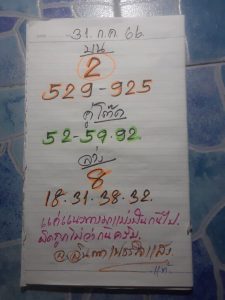 31. ก.ค 66
บน
2
529-925
คู่โต๊ด
52-59-92
ล่าง
8
18.31.38.32.
แค่แนวทางแบ่งปันกันไป.
ผิดถูกไม่ว่ากันครับ